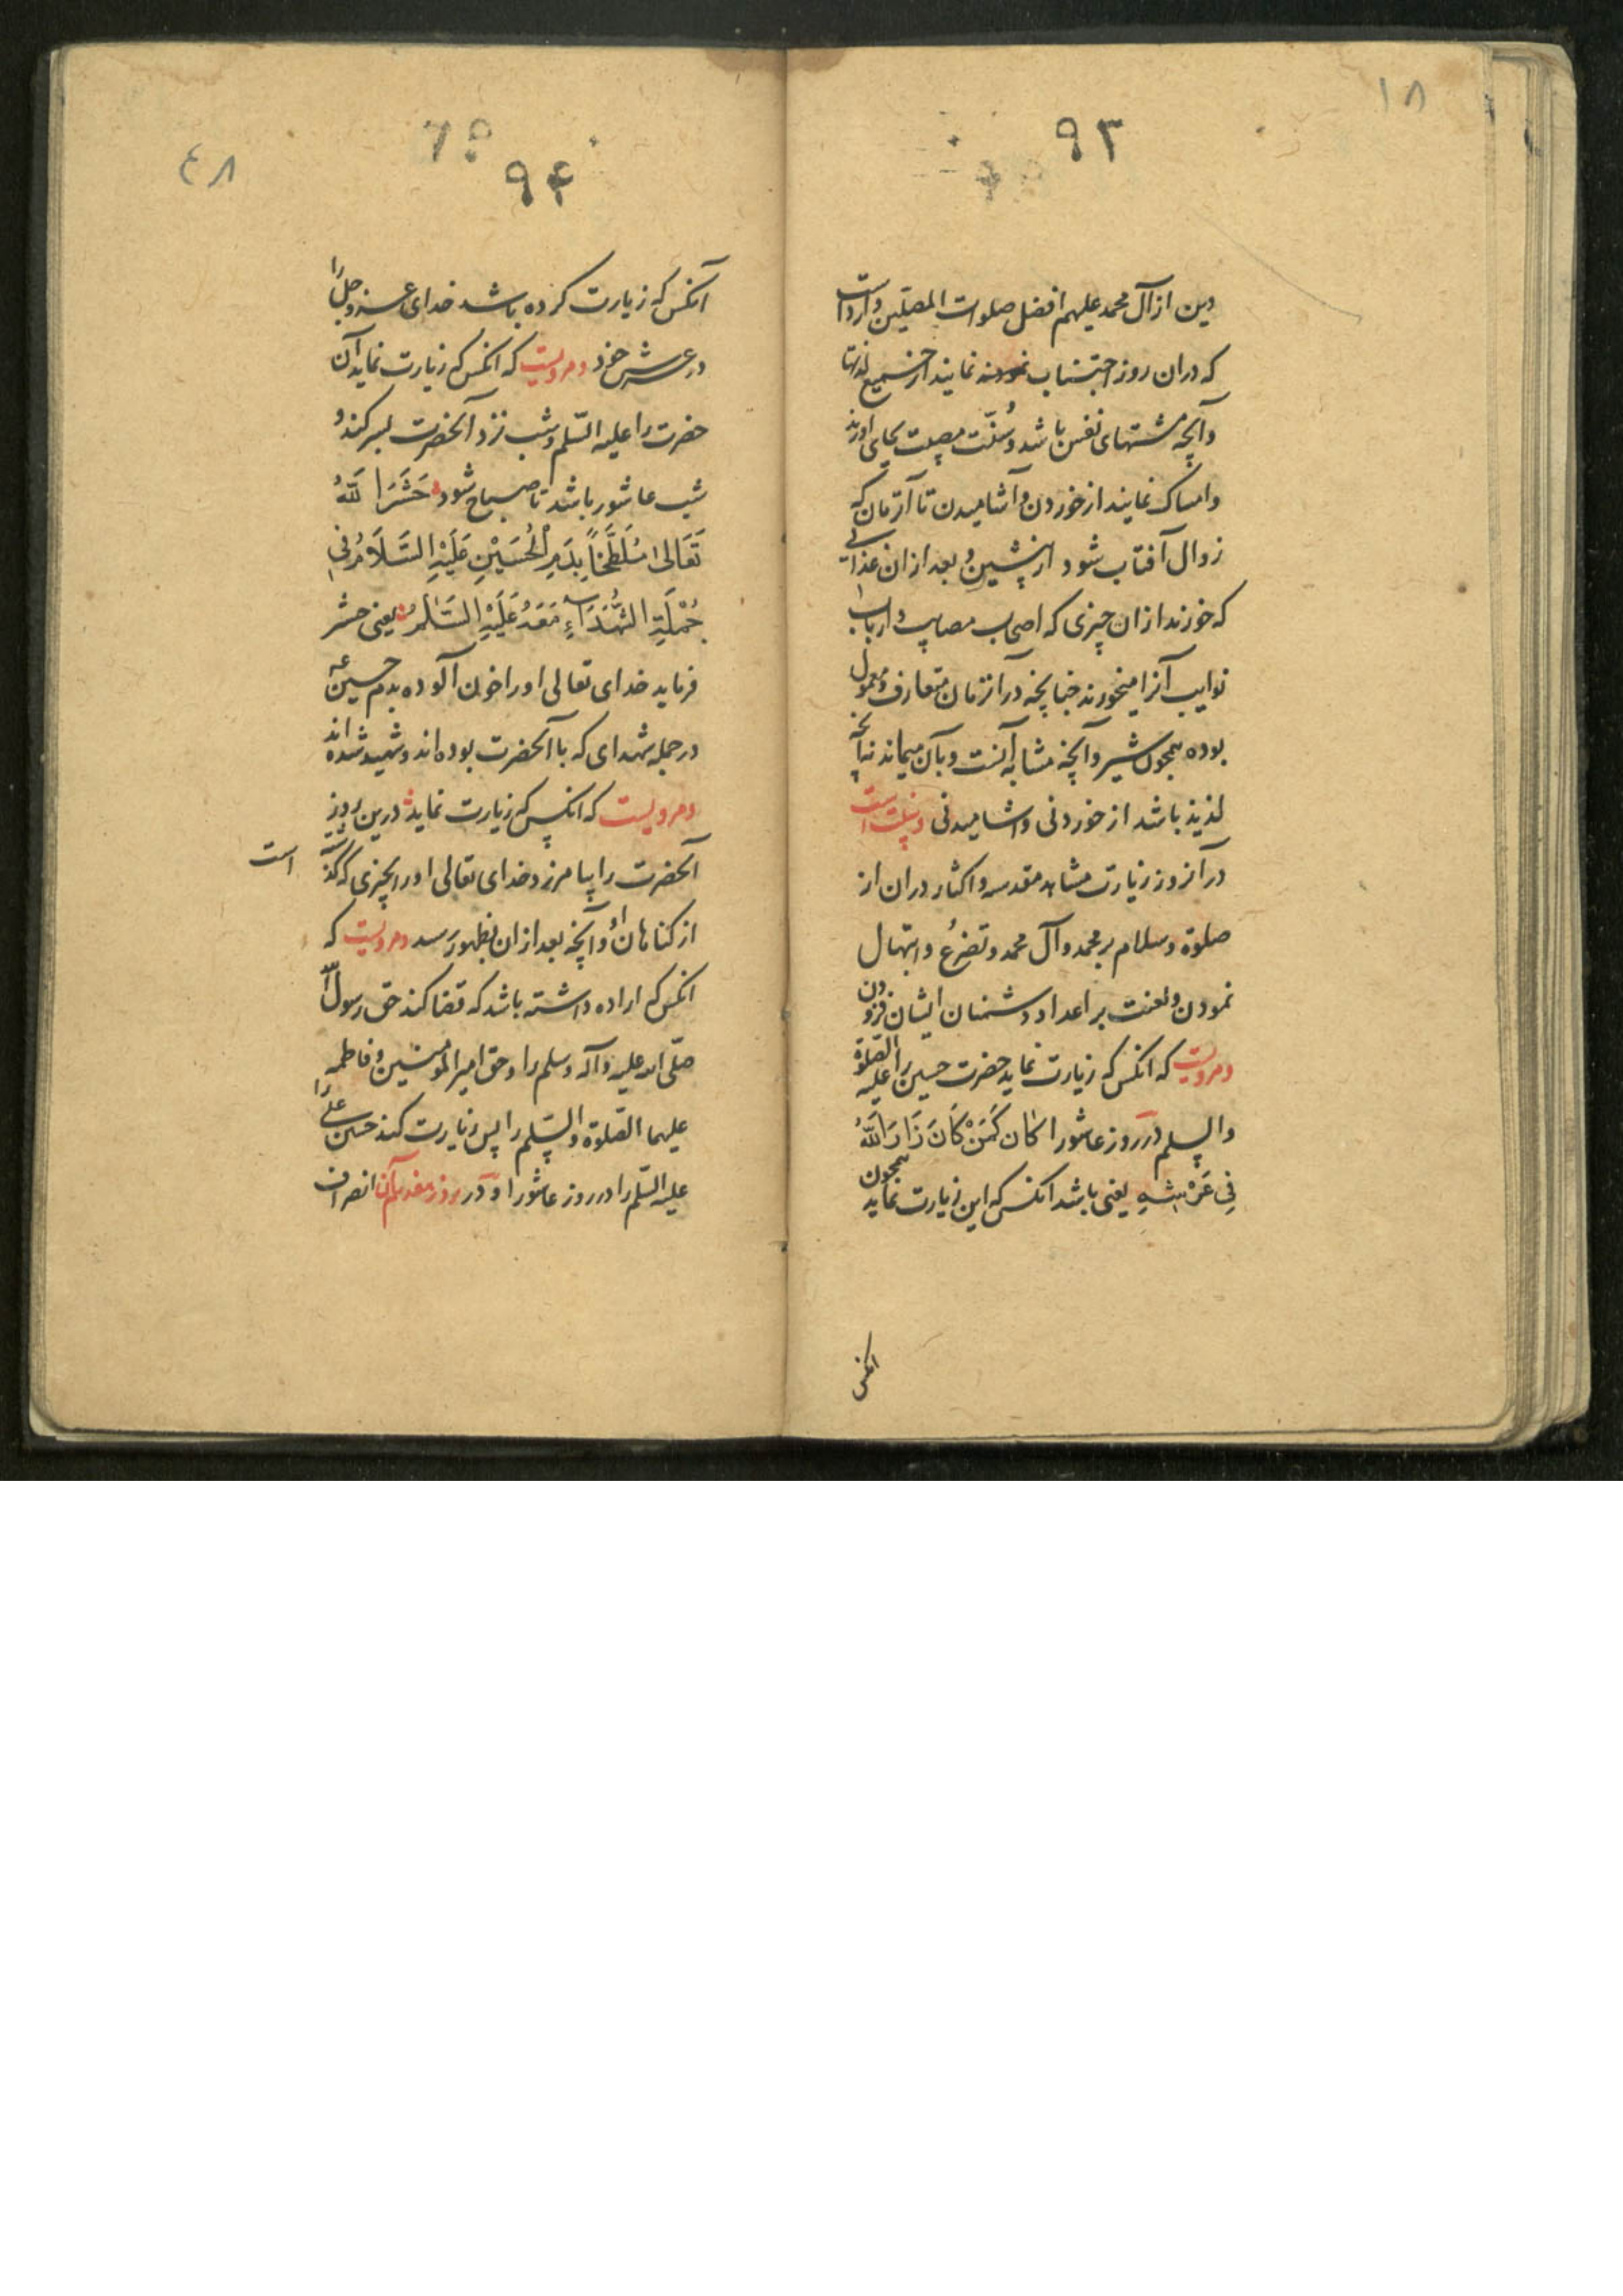 ۱۸
۹۳
دین از آل محمد علیهم افضل صلوات المصلین وارد است
که دران روز اجتناب نمایند از جمیع لذتها
وآنچه مشتهای نفس باشد و سنّت مصیبت بجای اورند
وامساک نمایند از خوردن وآشامیدن تا آنزمان که
زوال آفتاب شود از پیشین و بعد از ان غذائی
که خورند از ان چیزی که اصحاب مصایب و ارباب
نوایب آنرا میخورند چنانچه در آنزمان متعارف و معمول
بوده همچون شیر وآنچه مشابه آنست وبآن میماند نه آنچه
لذیذ باشد از خوردنی واشامیدنی وسنت است
در آنروز زیارت مشاهد مقدسه واکثار دران از
صلوة وسلام بر محمد وآل محمد وتضرُع وابتهال
نمودن ولعنت بر اعداد ودشمنان ایشان فزودن
ومرویست که انکس که زیارت نماید حضرت حسین را علیه الصّلوة
والسلم در روز عاشورا کان کَمَنْ کَانَ زَارَ اللهُ
فِی عَرْشِهِ یعنی باشد انکس که این زیارت نماید همچون
انکس
۴۸
۷۵
۹۴
آنکس که زیارت کرده باشد خدای عزوجل را
در عرش خود ومرویست که انکس که زیارت نماید آن
حضرت را علیه السّلم وشب نزد آنحضرت بسر کند و
شب عاشور باشد تا صباح شود حَشَرَا للهُ
تَعَالیٰ مُلَطَّخَاً بِدَمِ الْحُسَیْنِ عَلَیْهِ السَّلَامُ فِی
جُمْلَةِ الشُّهَدَاءِ مَعَهُ عَلَیْهِ السَّلٰمُ یعنی حشر
فرماید خدای تعالی اورا خون آلوده بدم حسین ع
در جمله شهدای که با آنحضرت بوده اند وشهید شده اند
ومرویست که انکس که زیارت نماید درین روز
آنحضرت را بیامرزد خدای تعالی اورا چیزی که گذشته است
از کناهان او وآنچه بعد ازان بظهور رسد ومرویست که
انکس که اراده داشته باشد که قضا کند حق رسول الله
صلّی الله علیه وآله وسلم را وحق امیر المومنین و فاطمه را
علیهما الصّلوة والسّلم را پس زیارت کند حسین علی
علیه السّلم را در روز عاشورا ودر روز هفدهم آن انصراف